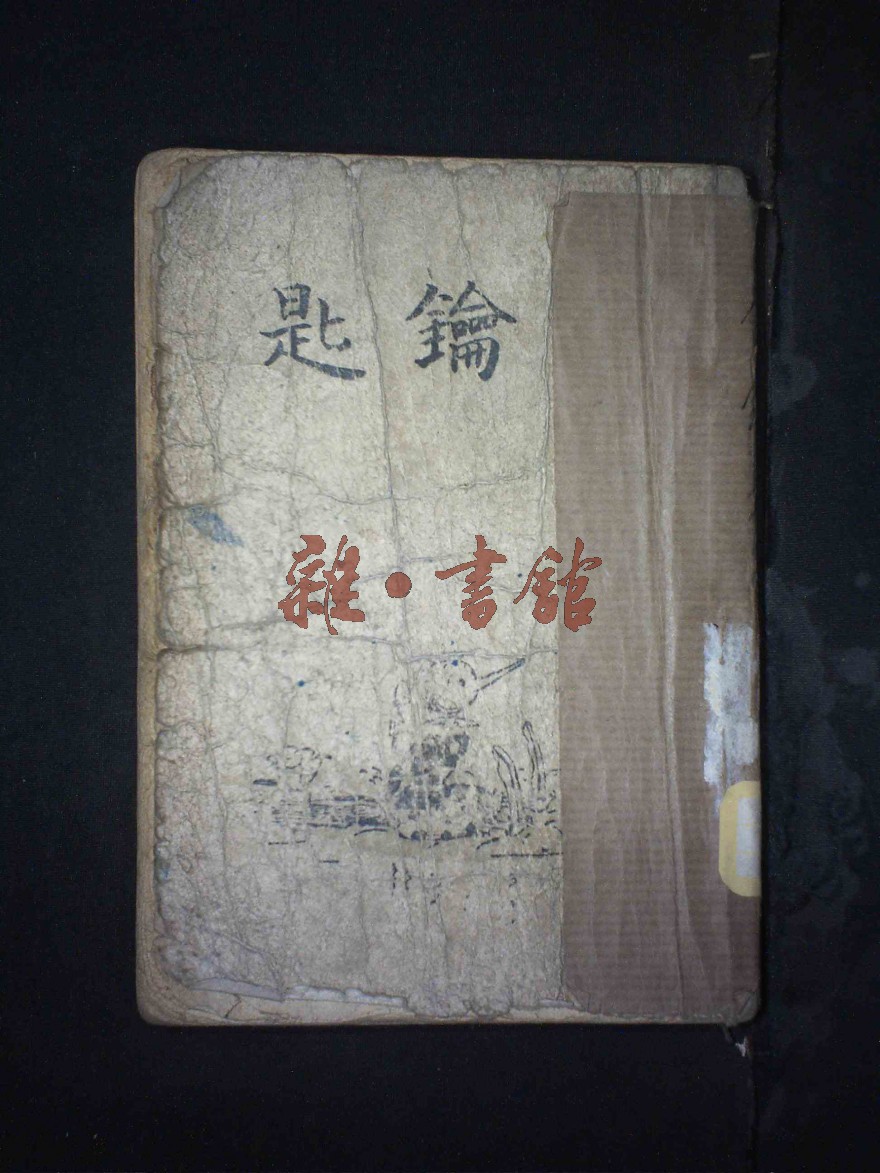 鑰匙
雜·書館